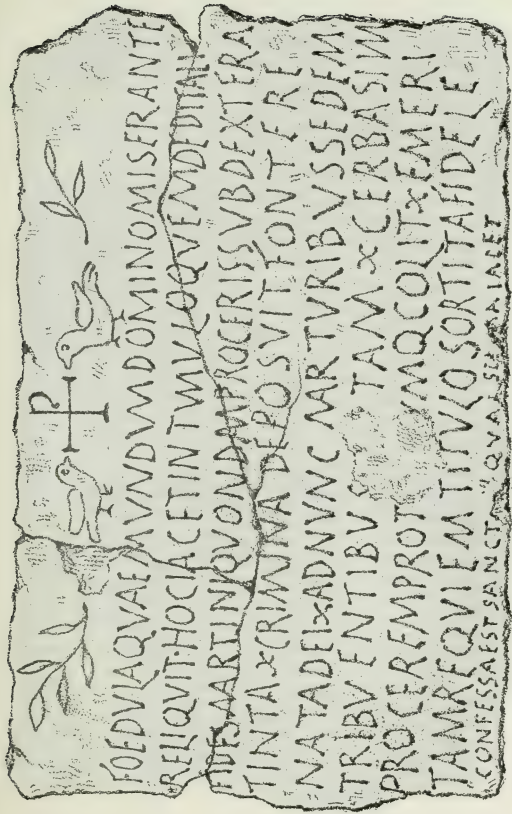 FOEDVLAQVAEMVNDVMDOMINOMISERANTE
RELIQVIT·HOCIACETINTMVLOQVEMDEDITALM
FIDESMARTINIQVONDAMPROCERISSVBDEXTERA
TINTA ∝ CRIMINA DEPOSVITFONTERE
NATADEI∝ADNVNC MARTVRIBVSSEDEM
TRIBVENTIBV TAM ∝ CERBASIVM
PROCEREMPROT VMQCOLIT∝EMERI
TAMREQVIEMTITVLOSORTITAFIDELE
CONFESSAEST SANCT QVAE IATAIACET